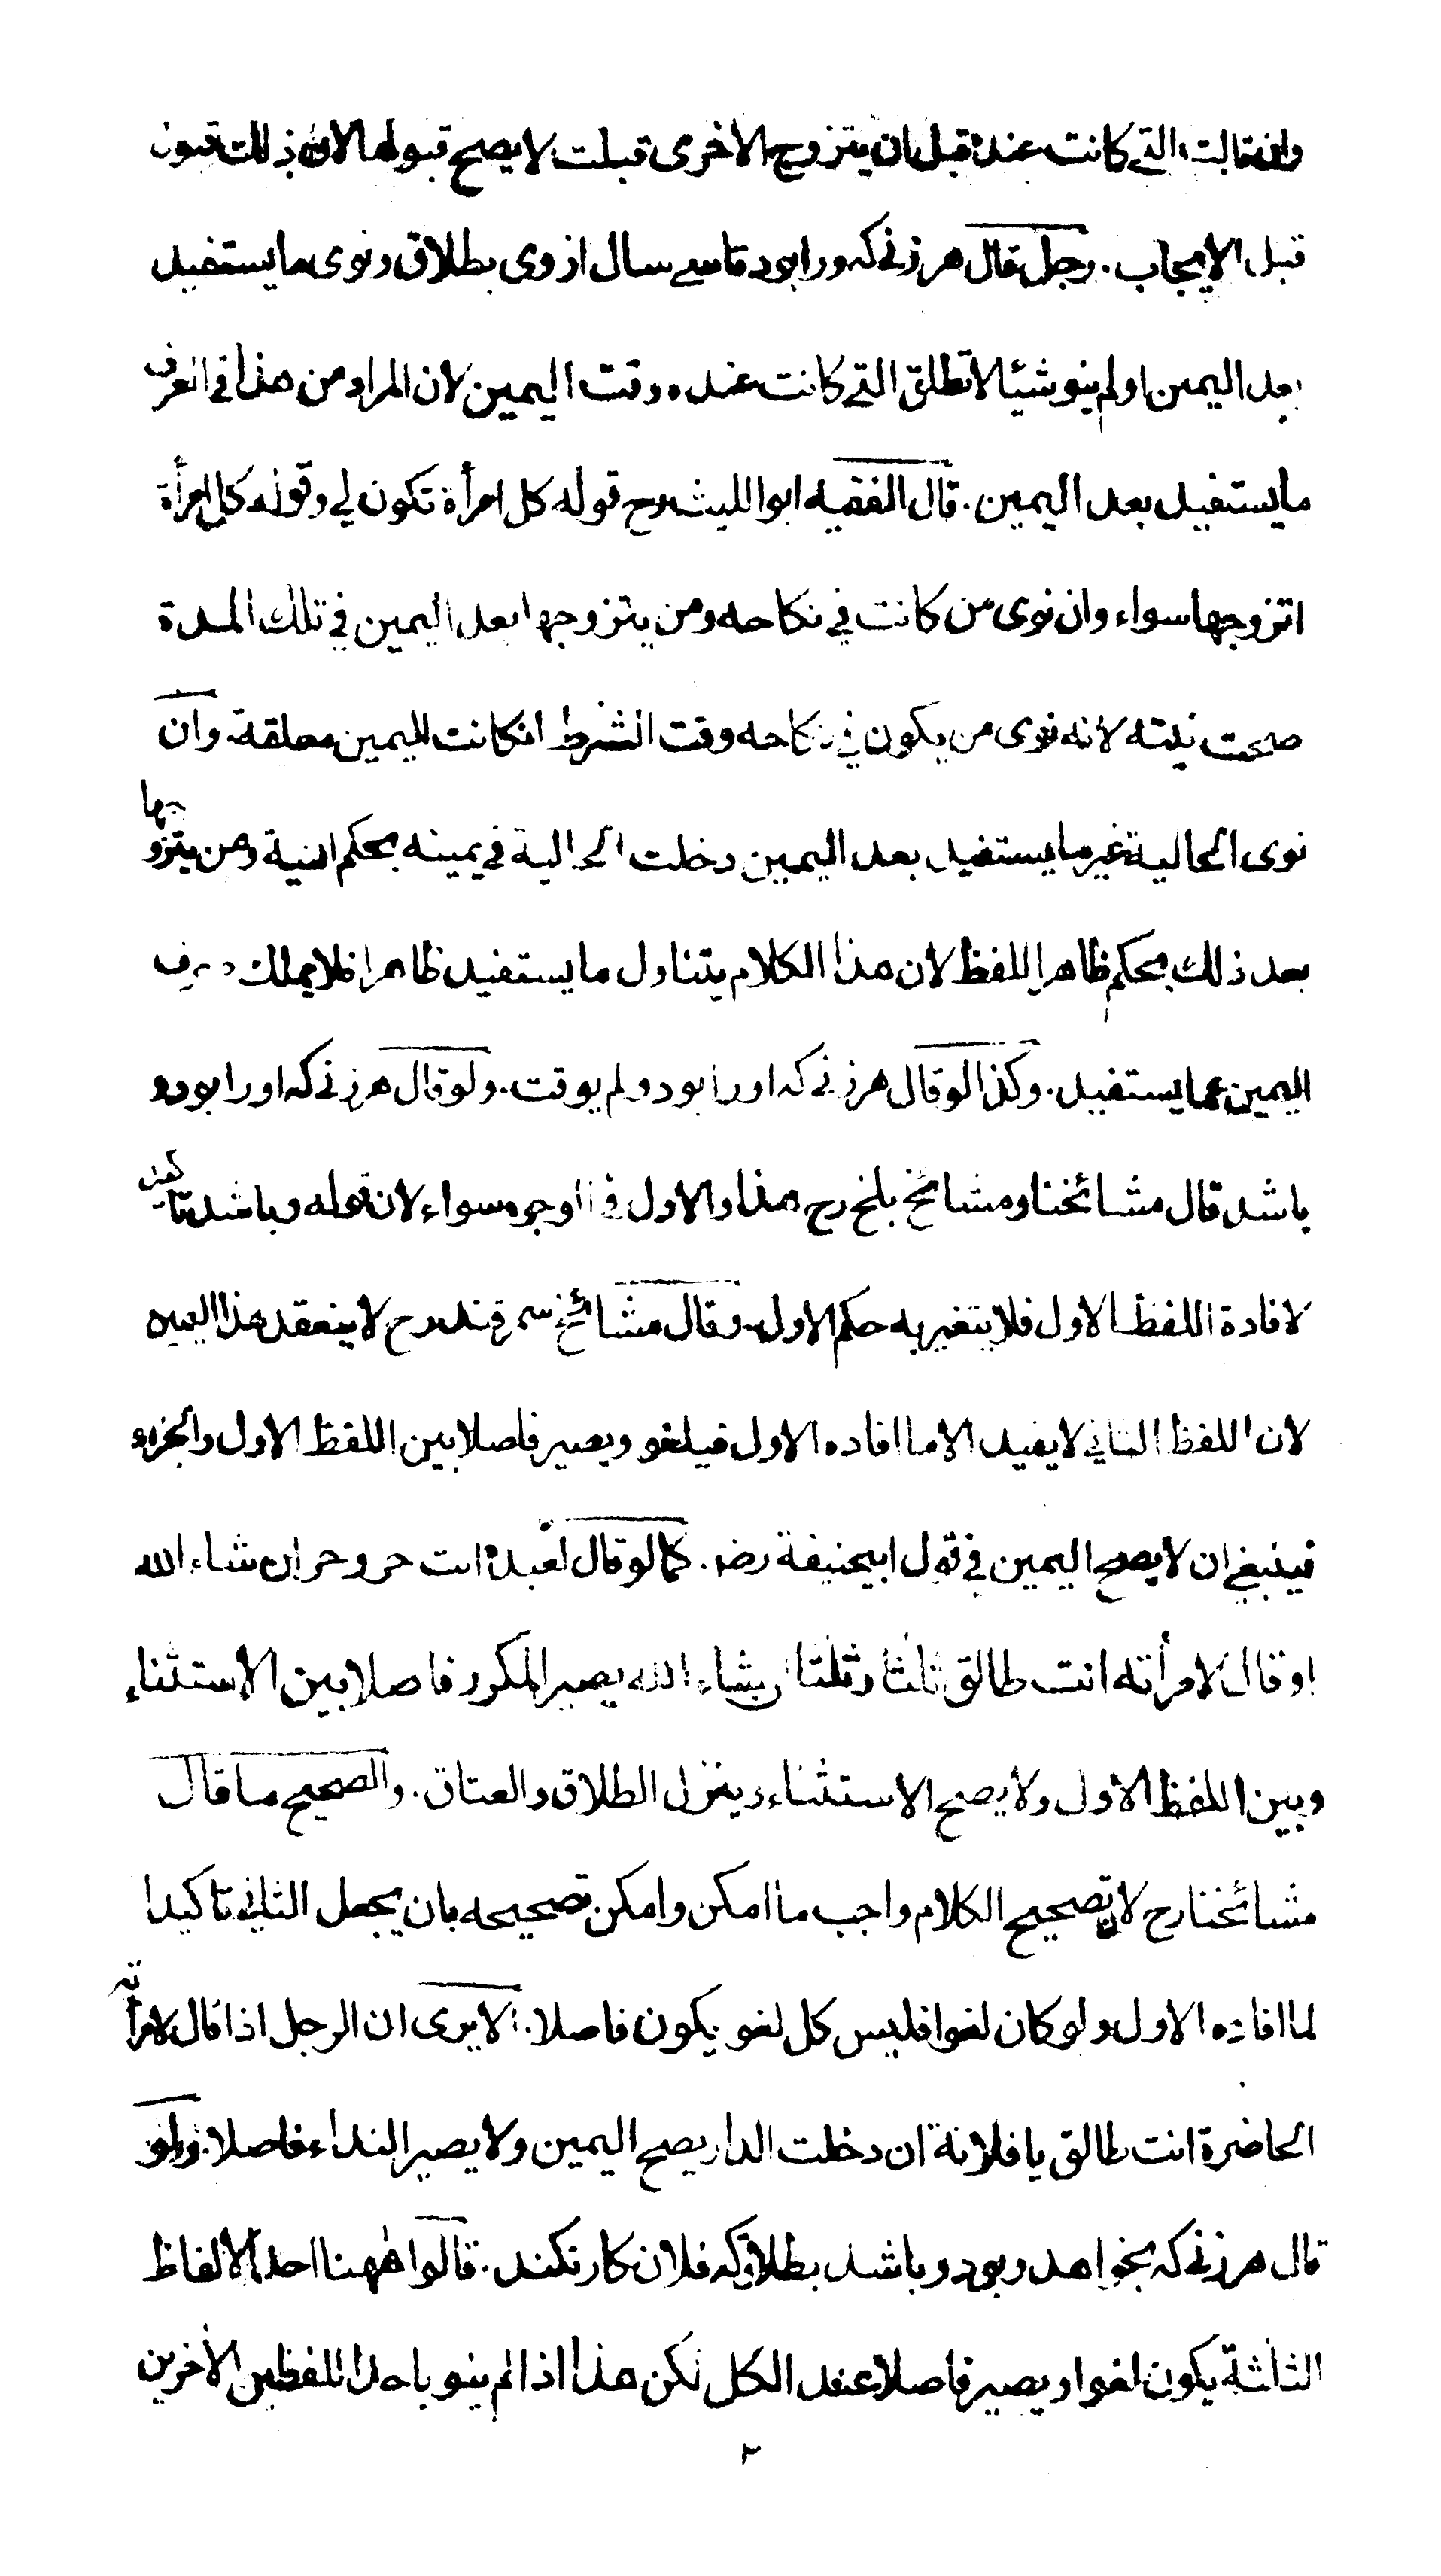 وان قالت التي كانت عنده قبل ان يتزوج الاخرى قبلت لا يصح قبولها لان ذلك قبول
قبل الايجاب . رجل قال هرزنے كه ورا بود تا سے سال ازوى بطلاق ونوى ما يستفيد
بعد اليمين او لم ينو شيئا لا تطلق التي كانت عنده وقت اليمين لان المراد من هذا في العرف
ما يستفيد بعد اليمين . قال الفقيه ابوالليث رح قوله كل امرأة تكون لي وقوله كل امرأة
اتزوجها سواء وان نوى من كانت في نكاحه ومن يتزوجها بعد اليمين في تلك المدة
صحت نيته لانه نوى من يكون في نكاحه وقت الشرط انكانت اليمين معلقة . وان
نوى الحالية غير ما يستفيد بعد اليمين دخلت الحالية في يمينه بحكم النية ومن يتزوجها
بعد ذلك بحكم ظاهر اللفظ لان هذا الكلام يتناول ما يستفيد ظاهرا فلا يملك صرف
اليمين عما يستفيد . وكذا لو قال هرزنے كه اورا بود ولم يوقت . ولو قال هرزنے كه اورا بود و
باشد قال مشائخنا ومشائخ بلخ رح هذا والاول في الوجوه سواء لان قوله وباشد تاكيد
لافادة اللفظ الاول فلا يتغير به حكم الاول وقال مشائخ سمرقند رح لا ينعقد هذا اليمين
لان اللفظ الثاني لا يفيد الا ما افاده الاول فيلغو ويصير فاصلا بين اللفظ الاول والجزاء
فينبغي ان لا يصح اليمين في قول ابيحنيفة رضه . كما لو قال لعبده انت حر وحر ان شاء الله
او قال لامرأته انت طالق ثلثا وثلثا ان شاء الله يصير المكرر فاصلا بين الاستثناء
وبين اللفظ الاول ولا يصح الاستثناء وينزل الطلاق والعتاق . والصحيح ما قال
مشائخنا رح لان تصحيح الكلام واجب ما امكن وامكن تصحيحه بان يجعل الثاني تاكيدا
لما افاده الاول ولو كان لغوا فليس كل لغو يكون فاصلا . الا يرى ان الرجل اذا قال لامرأته
الحاضرة انت طالق يا فلانة ان دخلت الدار يصح اليمين ولا يصير النداء فاصلا . ولو
قال هرزنے كه بخواهد وبود وباشد بطلاق كه فلان كار نكند . قالوا ههنا احد الالفاظ
الثلثة يكون لغوا ويصير فاصلا عند الكل لكن هذا اذا لم ينو باحد اللفظين الاخرين
٢